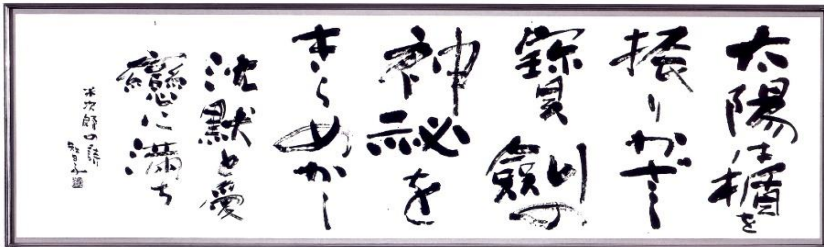 太陽は楯を
振りかざし
寶劍の
神祕を
きらめかし
沈默と愛
戀に満ち
米次郎の詩